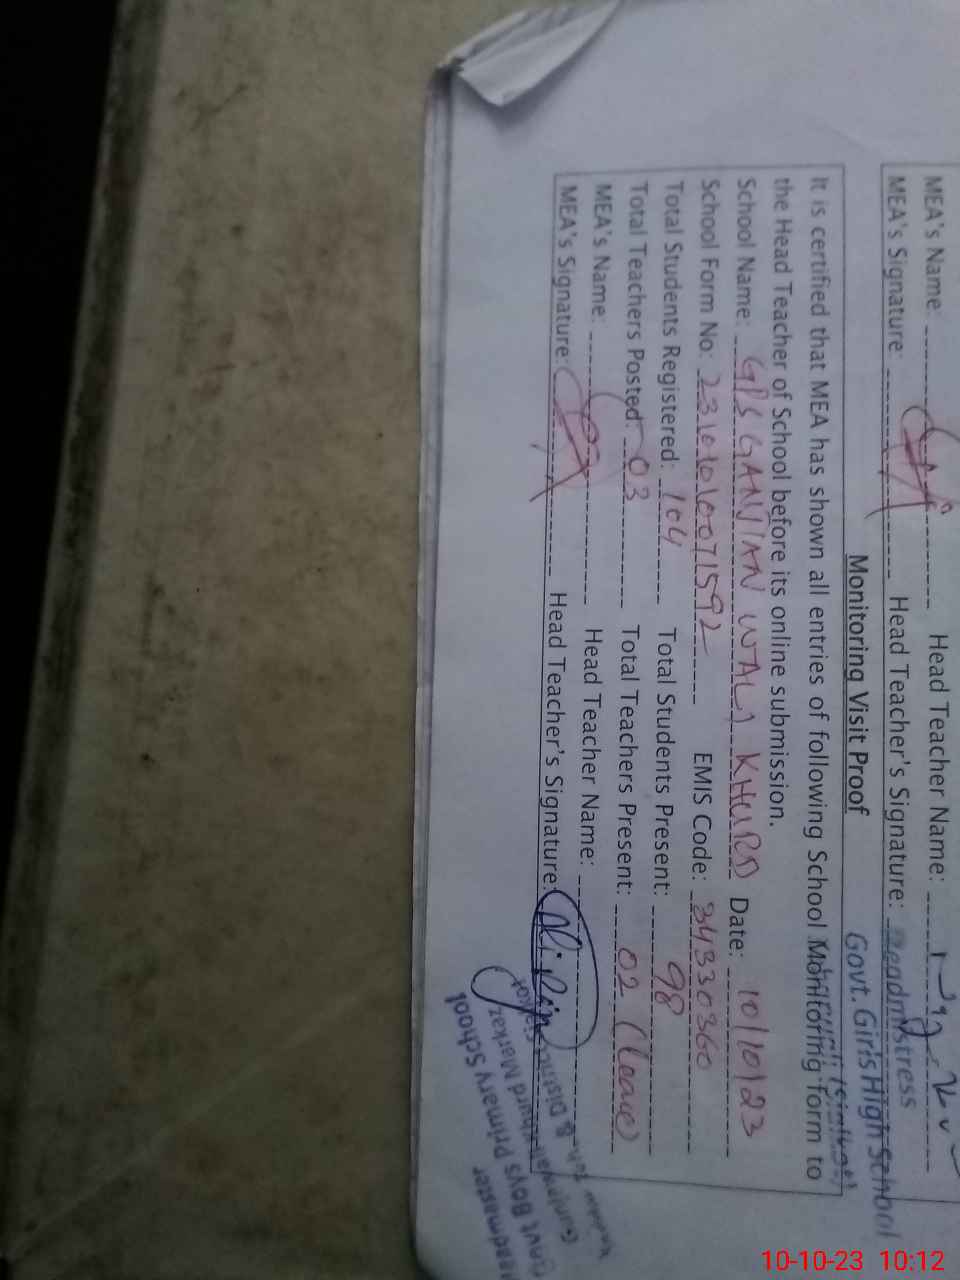 MEA's Name: Head Teacher Name:
MEA's Signature: Head Teacher's Signature:
Headmistress
Govt. Girls High School
Monitoring Visit Proof
It is certified that MEA has shown all entries of following School Monitoring form to
the Head Teacher of School before its online submission.
School Name: GPS GANJIAN WALI KHURD Date: 10/10/23
School Form No: 23101010071592 EMIS Code: 34330360
Total Students Registered: 104 Total Students Present: 98
Total Teachers Posted: 03 Total Teachers Present: 02 (leave)
MEA's Name: Head Teacher Name:
MEA's Signature: Head Teacher's Signature:
Headmaster
Govt Boys Primary School
Khurd Markaz
& District
10-10-23 10:12